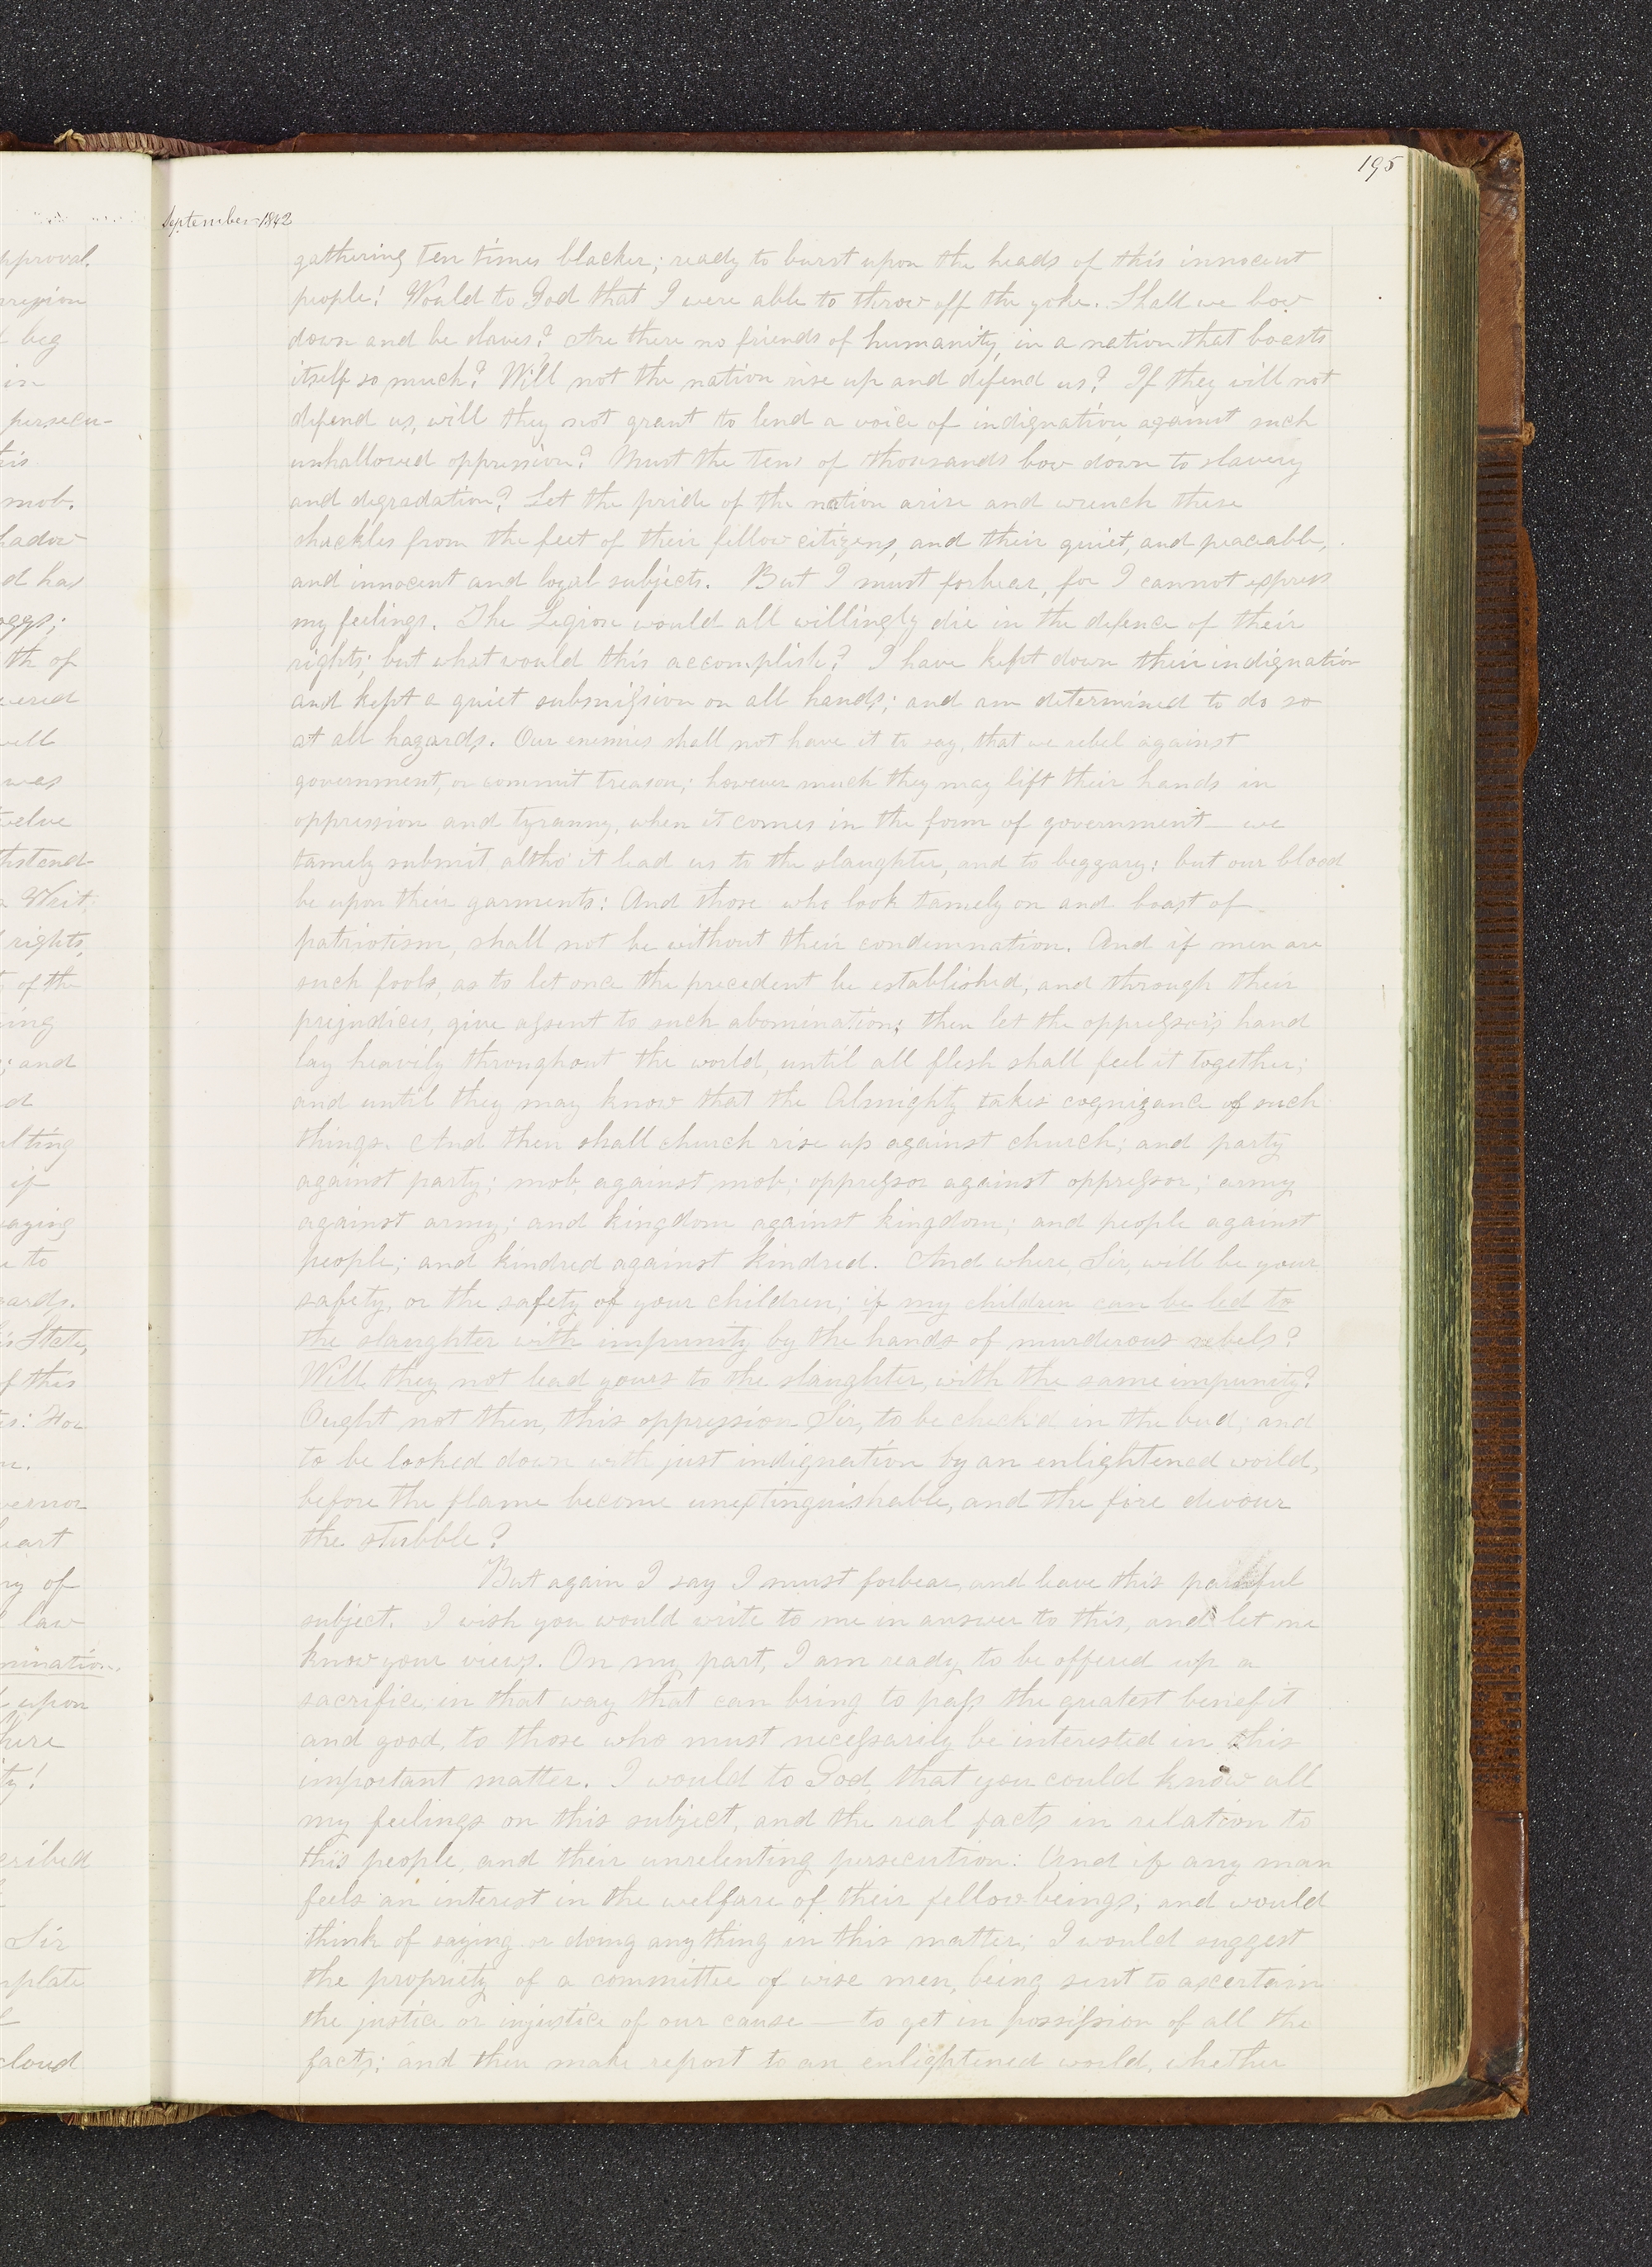 195
September 1842
gathering ten times blacker; ready to burst upon the heads of this innocent
people! Would to God that I were able to throw off the yoke. Shall we bow
down and be slaves? Are there no friends of humanity, in a nation that boasts
itself so much? Will not the nation rise up and defend us? If they will not
defend us, will they not grant to lend a voice of indignation against such
unhallowed oppression? Must the tens of thousands bow down to slavery
and degradation? Let the pride of the nation arise and wrench these
shackles from the feet of their fellow citizens, and their quiet, and peaceable,
and innocent and loyal subjects. But I must forbear, for I cannot express
my feelings. The Legion would all willingly die in the defence of their
rights; but what would this accomplish? I have kept down their indignation
and kept a quiet submission on all hands; and am determined to do so
at all hazards. Our enemies shall not have it to say, that we rebel against
government, or commit treason; however much they may lift their hands in
oppression and tyranny, when it comes in the form of government — we
tamely submit altho' it lead us to the slaughter, and to beggary: but our blood
be upon their garments: And those who look tamely on and boast of
patriotism, shall not be without their condemnation. And if men are
such fools, as to let once the precedent be established, and through their
prejudices, give assent to such abomination; then let the oppressor's hand
lay heavily throughout the world, until all flesh shall feel it together;
and until they may know that the Almighty takes cognizance of such
things. And then shall church rise up against church; and party
against party; mob, against mob; oppressor against oppressor; army
against army; and kingdom against kingdom; and people against
people; and kindred against kindred. And where, Sir, will be your
safety, or the safety of your children; if my children can be led to
the slaughter with impunity by the hands of murderous rebels?
Will they not lead yours to the slaughter, with the same impunity?
Ought not then, this oppression Sir, to be check'd in the bud; and
to be looked down with just indignation by an enlightened world,
before the flame become unextinguishable, and the fire devour
the stubble?
But again I say I must forbear, and leave this painful
subject. I wish you would write to me in answer to this, and let me
know your views. On my part, I am ready to be offered up a
sacrifice, in that way that can bring to pass the greatest benefit
and good, to those who must necessarily be interested in this
important matter. I would to God, that you could know all
my feelings on this subject, and the real facts in relation to
this people, and their unrelenting persecution: And if any man
feels an interest in the welfare of their fellow beings; and would
think of saying or doing any thing in this matter; I would suggest
the propriety of a committee of wise men, being sent to ascertain
the justice or injustice of our cause — to get in possession of all the
facts; and then make report to an enlightened world, whether